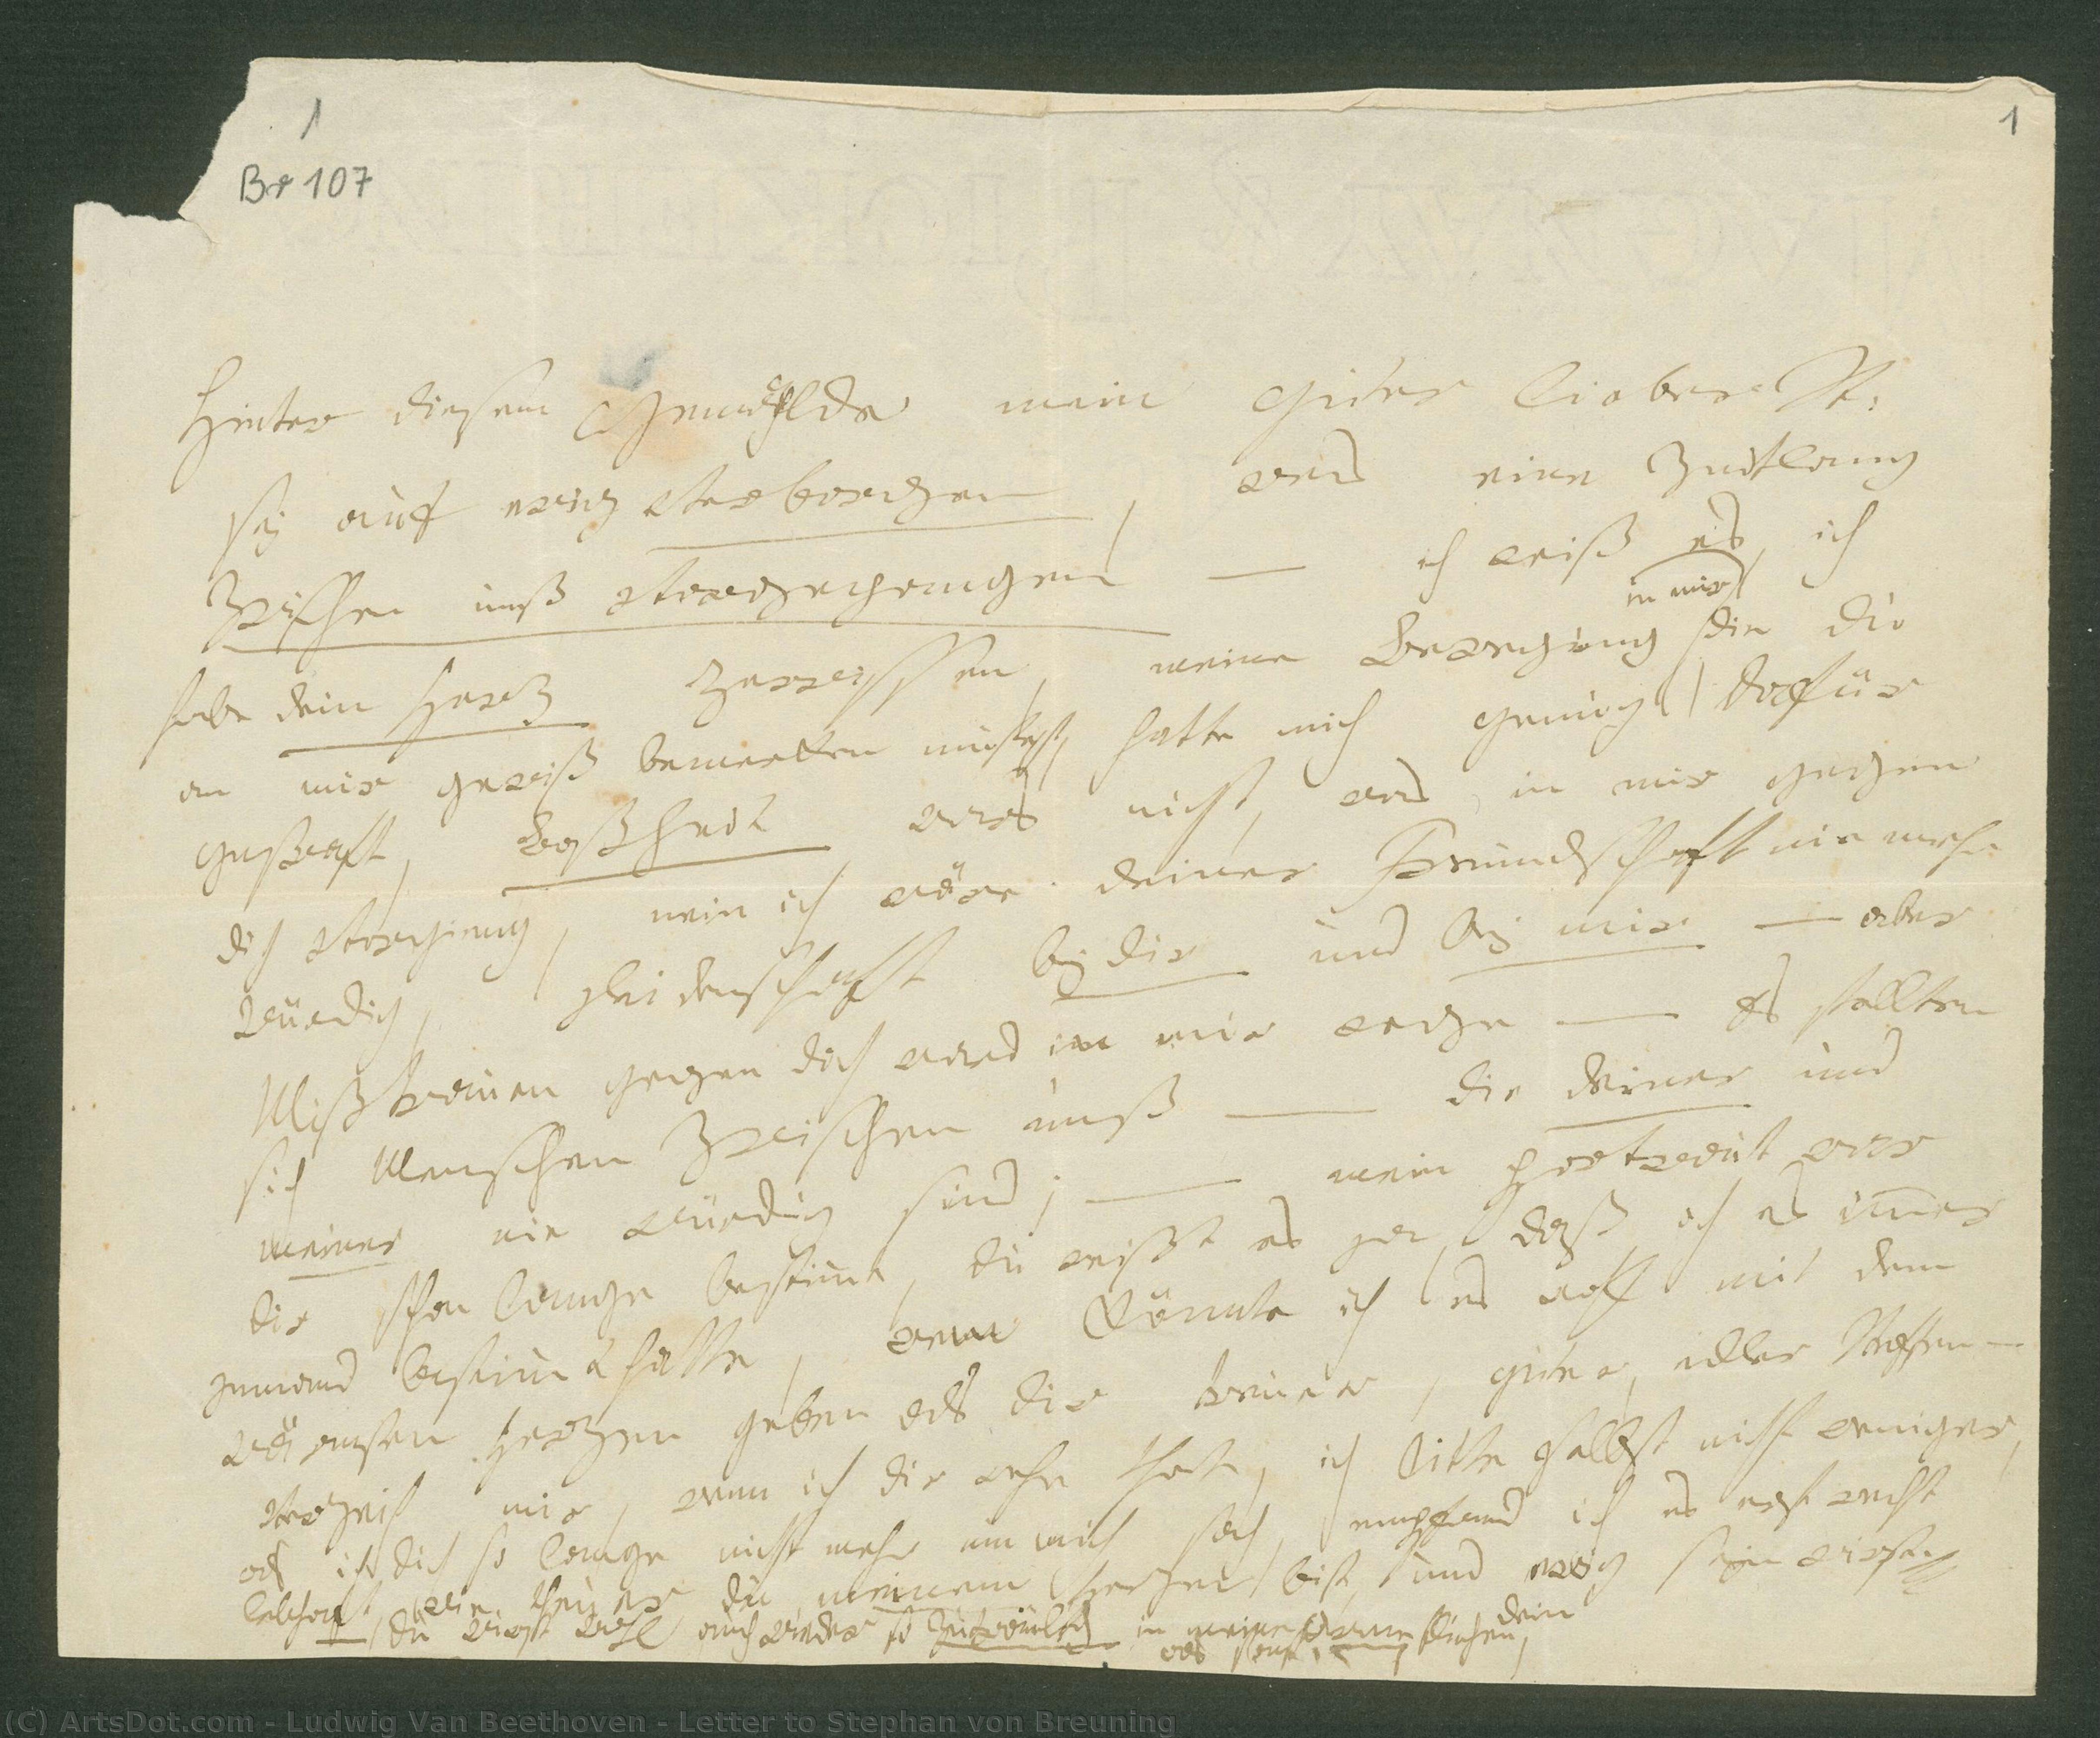 1
1
Br 107
Hinter diesem Gemählde mein guter lieber St:
sej auf ewig verborgen, was eine Zeitlang
zwischen unß vorgegangen — ich weiß es, ich
in mir
habe dein Herz zerrissen, meine Bewegung die du
an mir gewiß bemerken mustest, hatte mich genug dafür
gestraft, Boßheit wars nicht, was in mir gegen
dich vorgieng, nein ich wäre deiner Freundschaft nie mehr
würdig, Leidenschaft bej dir und bej mir — aber
Mißtrauen gegen dich ward in mir rege — es stellten
sich Menschen zwischen unß — die deiner und
meiner nie würdig sind; — mein portrait war
dir schon lange bestimt, du weißt es ja, daß ich es imer
jemand bestimt hatte, wem könnte ich es wohl mit dem
wärmsten Herzen geben als dir treuer, guter, edler Steffen —
Verzeih mir, wenn ich dir wehe that, ich litte selbst nicht weniger,
als ich dich so lange nicht mehr um mich sah, empfand ich es erst recht
lebhaft, wie theuer du meinem Herzen bist, und ewig sejn wirst
du wirst wohl auch wieder so zutraulich in meine Arme fliehen,
als sonst. dein
(C) ArtsDot.com - Ludwig Van Beethoven - Letter to Stephan von Breuning